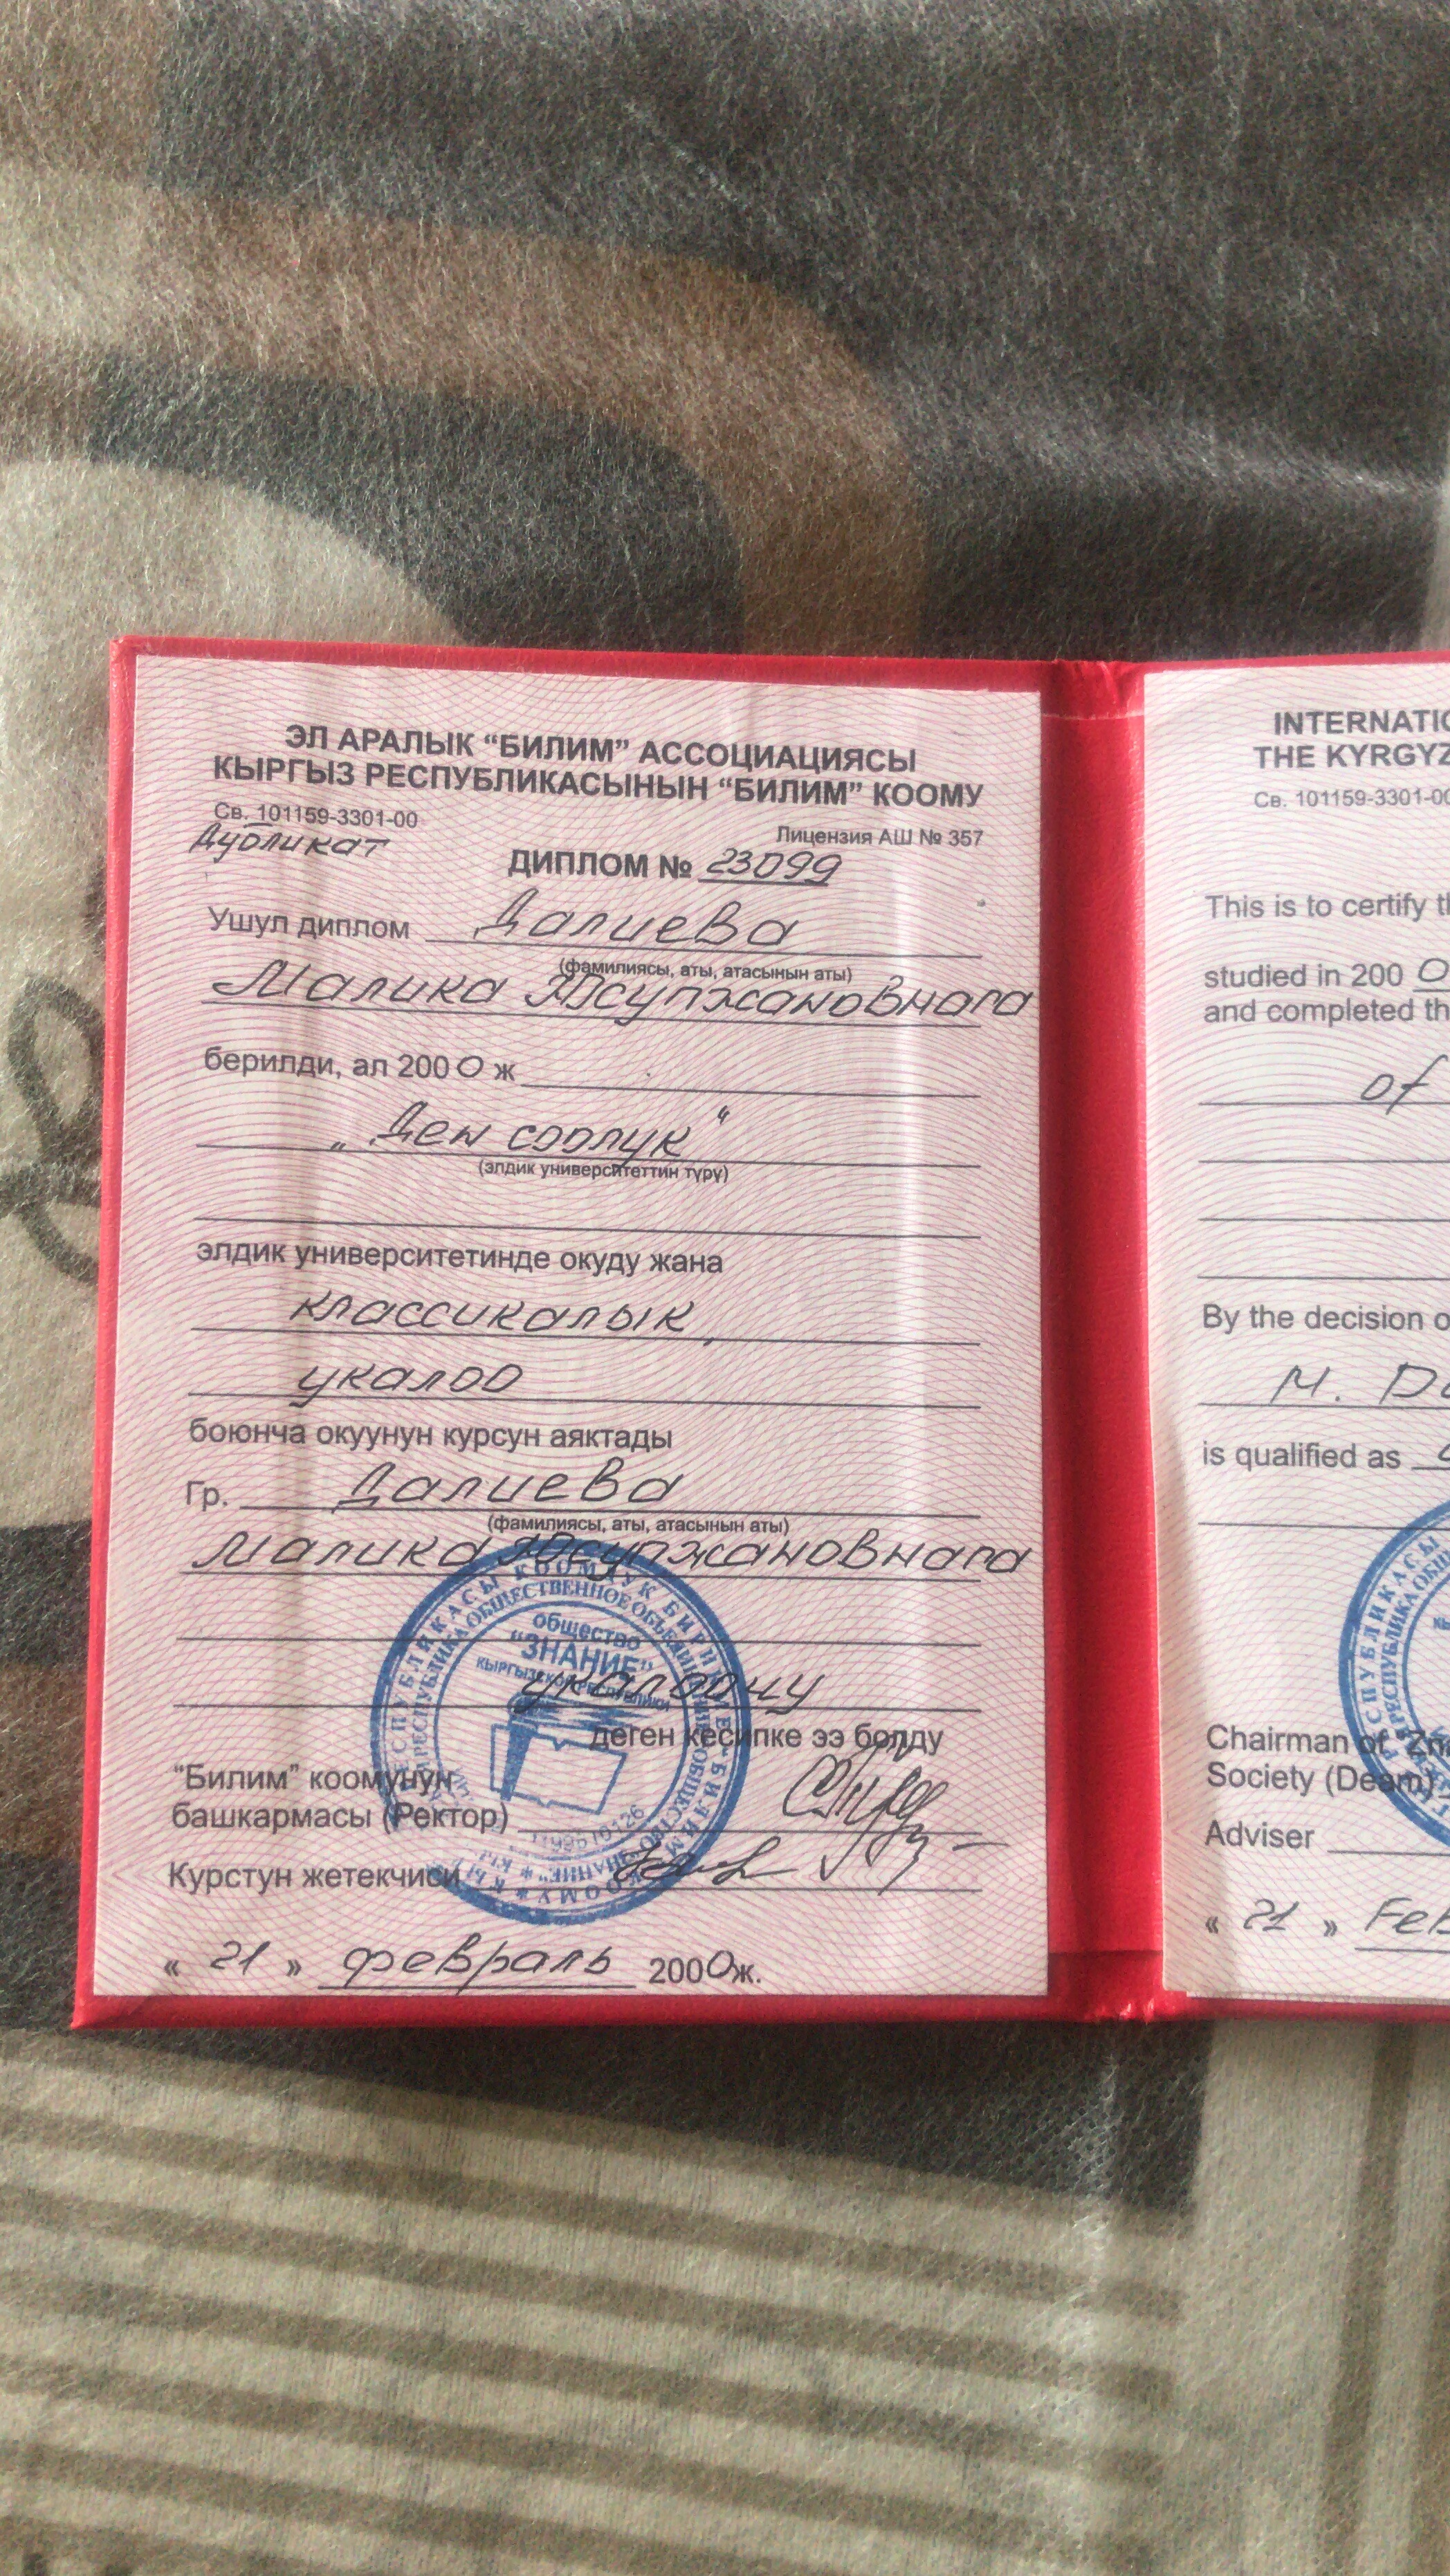 ЭЛ АРАЛЫК “БИЛИМ” АССОЦИАЦИЯСЫ
КЫРГЫЗ РЕСПУБЛИКАСЫНЫН “БИЛИМ” КООМУ
Св. 101159-3301-00
Лицензия АШ № 357
Дубликат
ДИПЛОМ № 23099
Ушул диплом Далиева
(фамилиясы, аты, атасынын аты)
Малика Юсупжановнага
берилди, ал 2000 ж
„Ден соолук“
(элдик университеттин түрү)
элдик университетинде окуду жана
классикалык,
укалоо
боюнча окуунун курсун аяктады
Гр. Далиева
(фамилиясы, аты, атасынын аты)
Малика Юсупжановнага
общество
“ЗНАНИЕ”
КЫРГЫЗСКОЙ РЕСПУБЛИКИ
укалоочу
деген кесипке ээ болду
“Билим” коомунун
башкармасы (Ректор)
Курстун жетекчиси
« 21 » февраль 2000ж.
INTERNATIO
THE KYRGYZ
Св. 101159-3301-00
This is to certify th
studied in 200 0
and completed th
of
By the decision o
M. Da
is qualified as
Chairman of “Zna
Society (Deam)
Adviser
« 21 » Feb